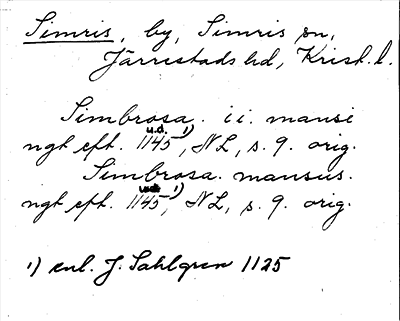 Simris, by, Simris sn,
Järrestads hd, Krist. l.
Simbrosa. ii. mansi
ngt eft. u.d. 1145 1), NL, s. 9. orig.
Simbrosa. mansus.
ngt eft. 1145 1), NL, s. 9. orig.
1) enl. J. Sahlgren 1125